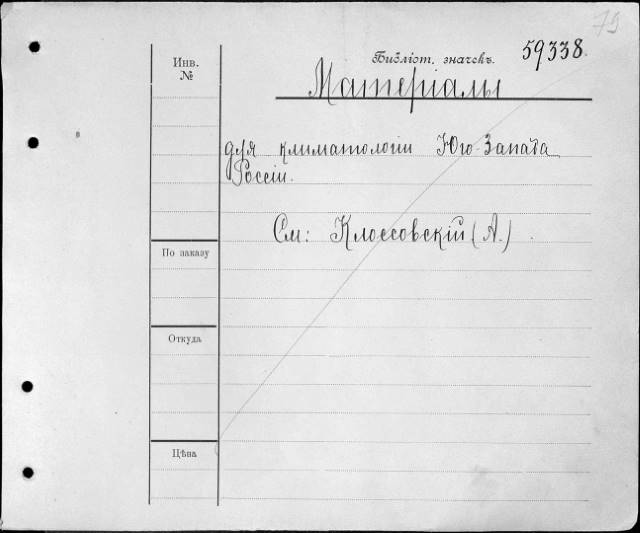 79
Инв.
№
Библіот. значекъ.
59338.
Матеріалы
для климатологіи Юго-Запада
Россіи.
См: Клоссовскій (А.)
По заказу
Откуда
Цѣна